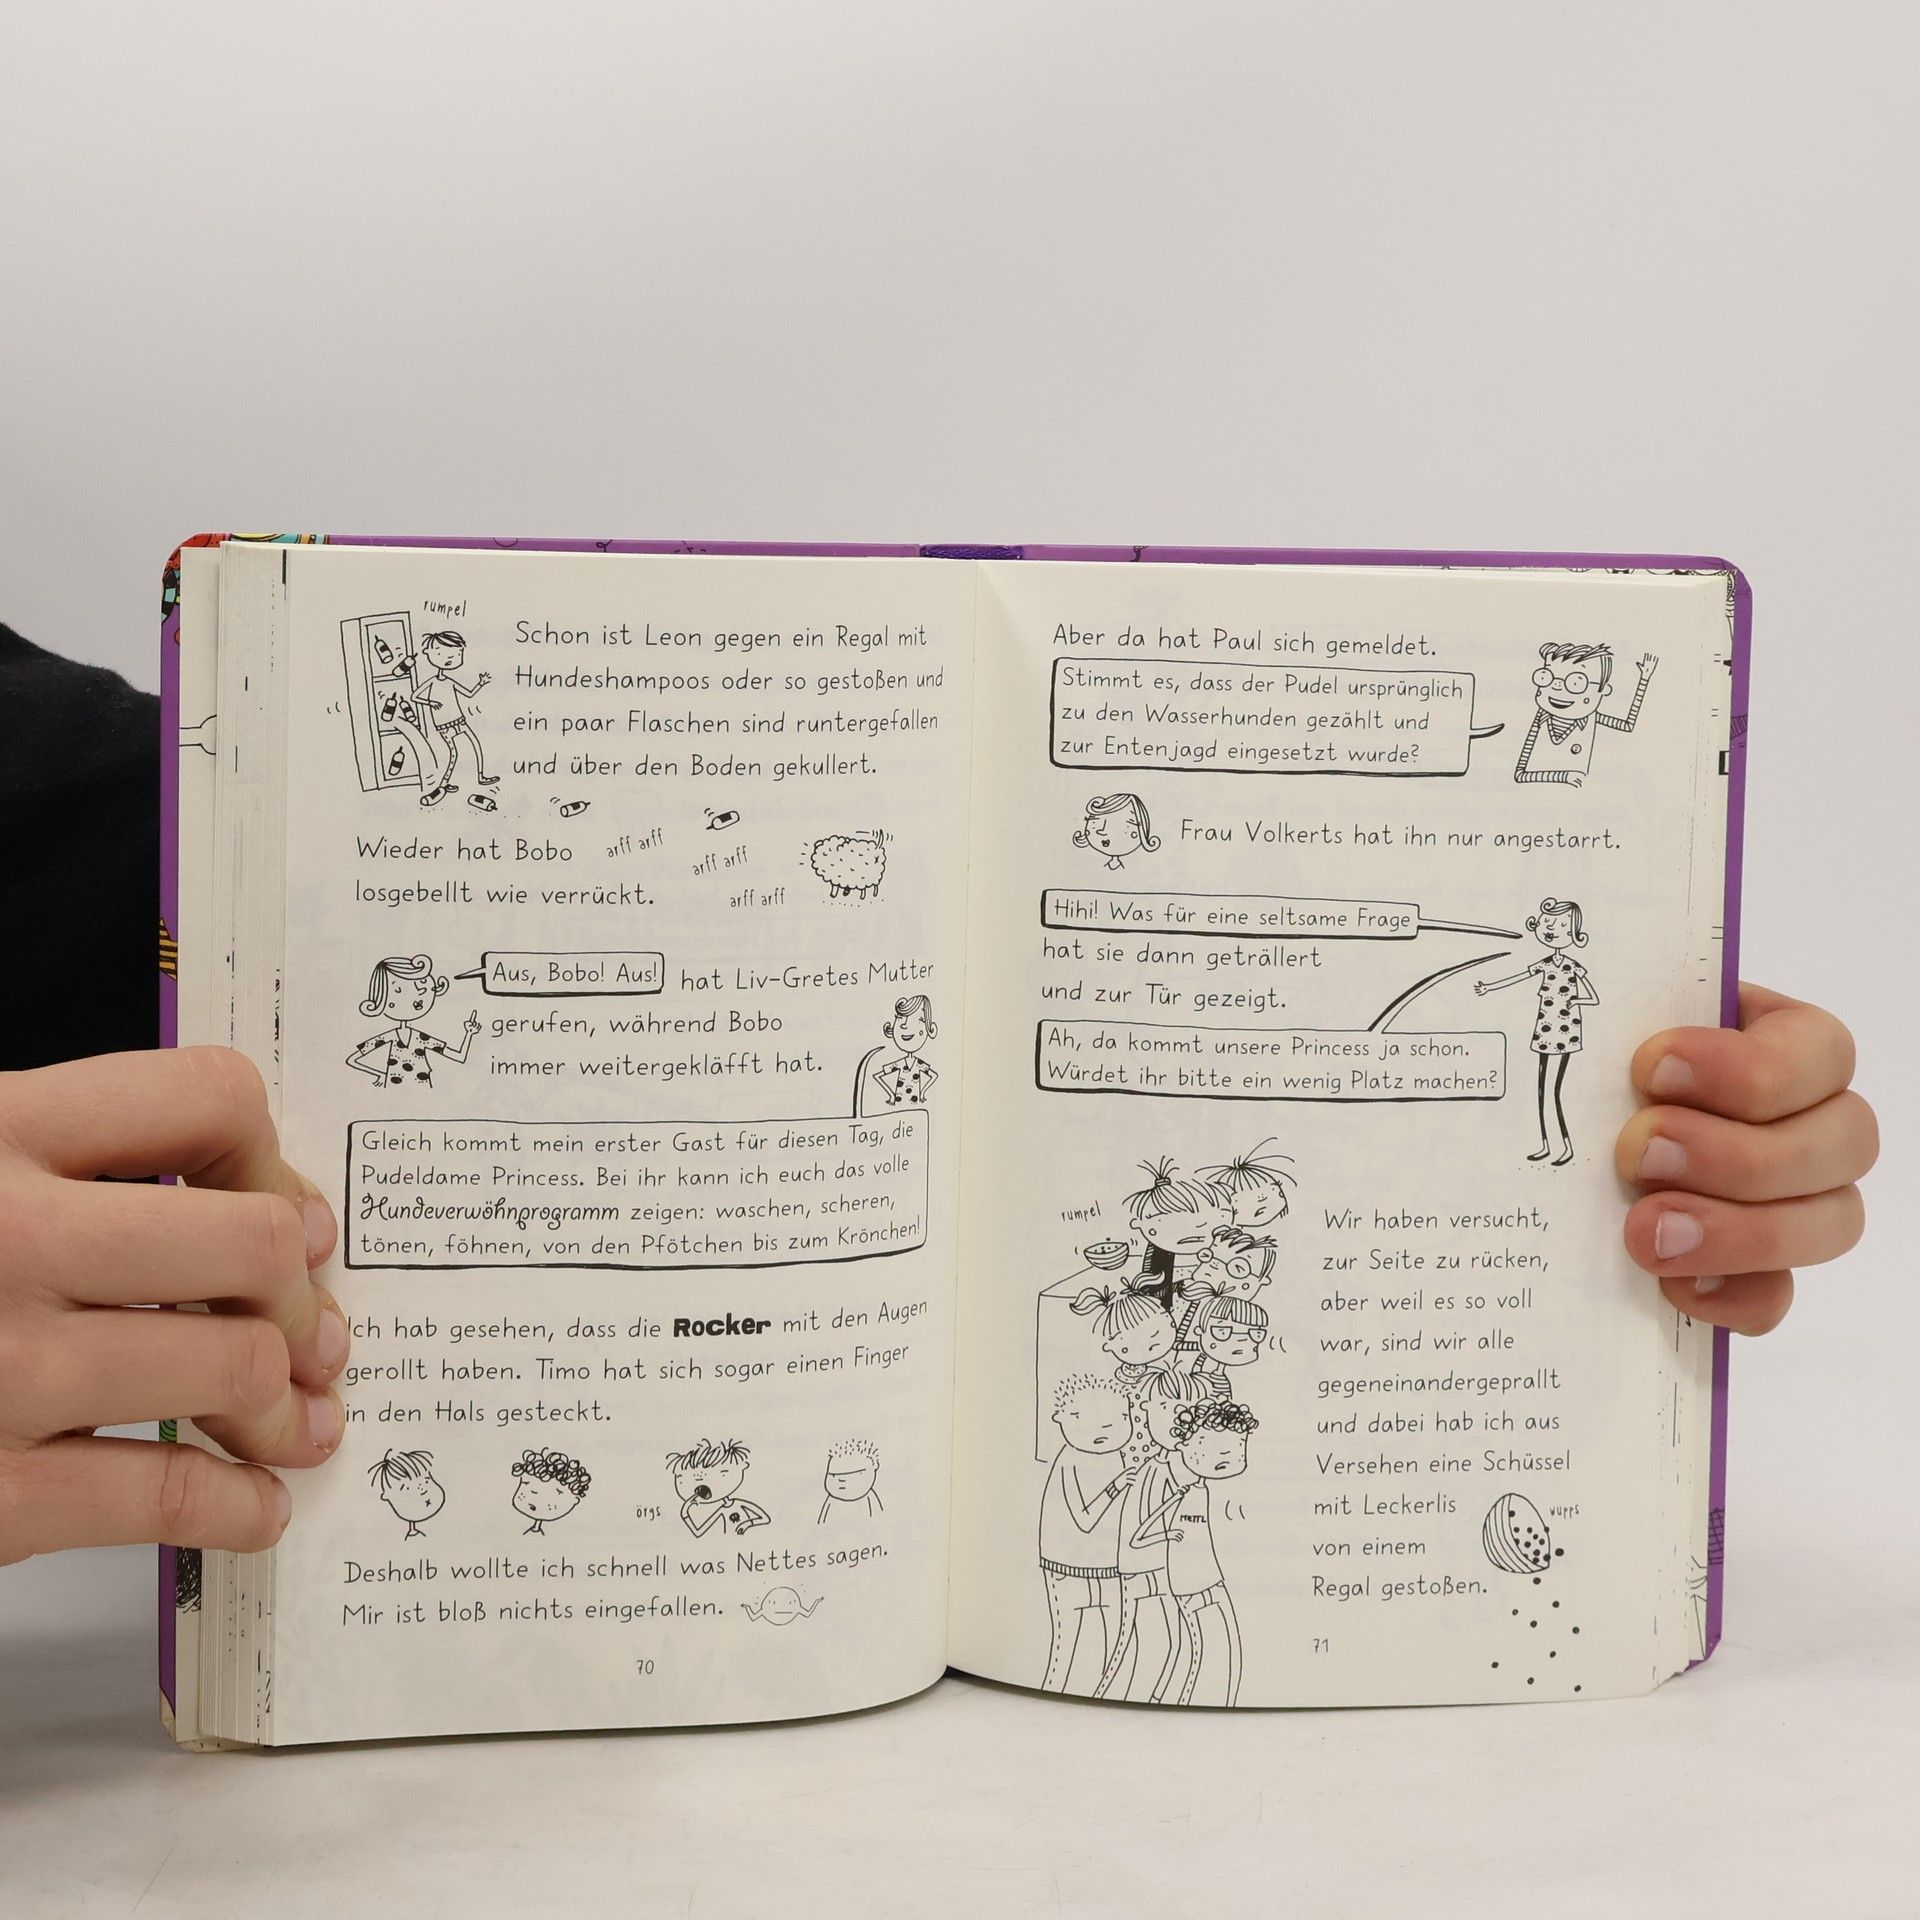 rumpel
Schon ist Leon gegen ein Regal mit
Hundeshampoos oder so gestoßen und
ein paar Flaschen sind runtergefallen
und über den Boden gekullert.
Wieder hat Bobo
losgebellt wie verrückt.
arff arff
arff arff
arff arff
Aus, Bobo! Aus! hat Liv-Gretes Mutter
gerufen, während Bobo
immer weitergekläfft hat.
Gleich kommt mein erster Gast für diesen Tag, die
Pudeldame Princess. Bei ihr kann ich euch das volle
Hundeverwöhnprogramm zeigen: waschen, scheren,
tönen, föhnen, von den Pfötchen bis zum Krönchen!
Ich hab gesehen, dass die Rocker mit den Augen
gerollt haben. Timo hat sich sogar einen Finger
in den Hals gesteckt.
örgs
Deshalb wollte ich schnell was Nettes sagen.
Mir ist bloß nichts eingefallen.
70
Aber da hat Paul sich gemeldet.
Stimmt es, dass der Pudel ursprünglich
zu den Wasserhunden gezählt und
zur Entenjagd eingesetzt wurde?
Frau Volkerts hat ihn nur angestarrt.
Hihi! Was für eine seltsame Frage
hat sie dann geträllert
und zur Tür gezeigt.
Ah, da kommt unsere Princess ja schon.
Würdet ihr bitte ein wenig Platz machen?
rumpel
Wir haben versucht,
zur Seite zu rücken,
aber weil es so voll
war, sind wir alle
gegeneinandergeprallt
und dabei hab ich aus
Versehen eine Schüssel
mit Leckerlis
von einem
Regal gestoßen.
wupps
71